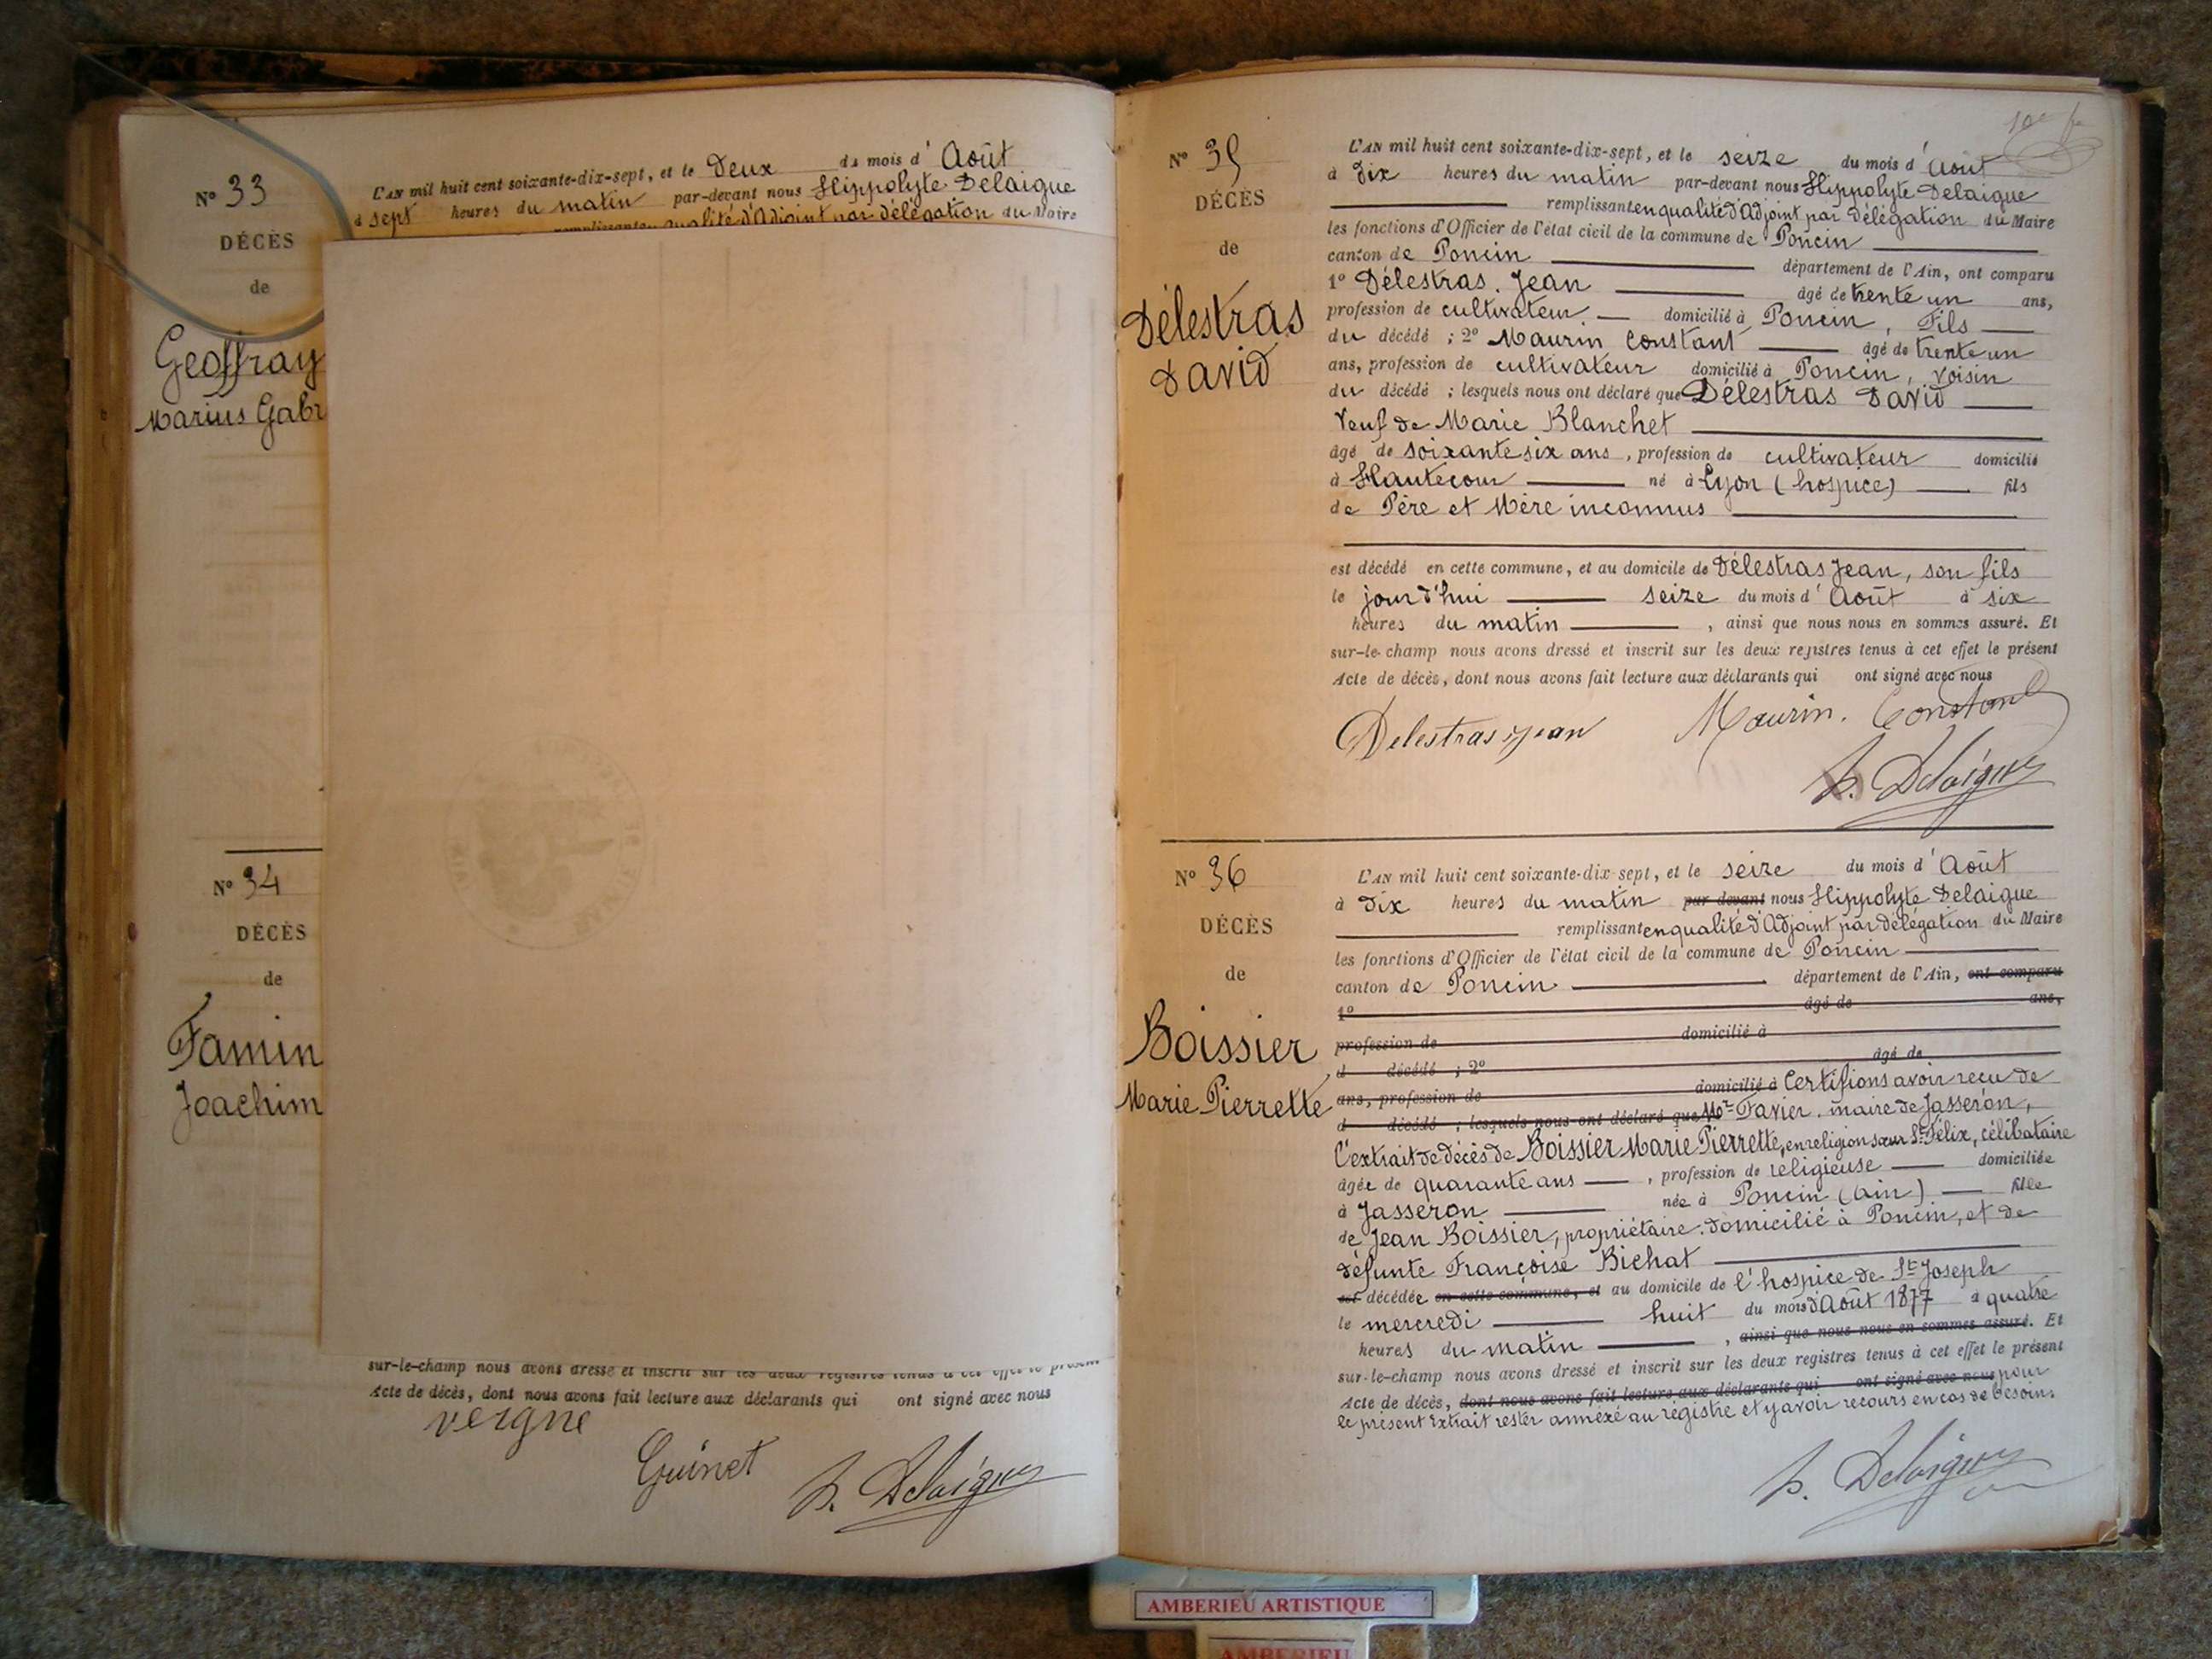 N° 33
DÉCÈS
de
Geoffray
Marius Gabr
L'AN mil huit cent soixante-dix-sept, et le Deux du mois d'Août
à sept heures du matin par-devant nous Hippolyte Delaigue
remplissant en qualité d'Adjoint par délégation du Maire
N° 34
DÉCÈS
de
Famin
Joachim
sur-le-champ nous avons dressé et inscrit sur les deux registres tenus à cet effet le présent
Acte de décès, dont nous avons fait lecture aux déclarants qui ont signé avec nous
vergne
Guinet
h. Delaigue
N° 35
DÉCÈS
de
Délestras
David
L'AN mil huit cent soixante-dix-sept, et le seize du mois d'Août
à Dix heures du matin par-devant nous Hippolyte Delaigue
remplissant en qualité d'Adjoint par Délégation du Maire
les fonctions d'Officier de l'état civil de la commune de Poncin
canton de Poncin département de l'Ain, ont comparu
1° Délestras Jean âgé de trente un ans,
profession de cultivateur domicilié à Poncin, Fils
du décédé ; 2° Maurin Constant âgé de trente un
ans, profession de cultivateur domicilié à Poncin, voisin
du décédé ; lesquels nous ont déclaré que Délestras David
Veuf de Marie Blanchet
âgé de soixante six ans, profession de cultivateur domicilié
à Hautecour né à Lyon (hospice) fils
de Père et Mère inconnus
est décédé en cette commune, et au domicile de Délestras Jean, son fils
le jour d'hui seize du mois d'Août à six
heures du matin, ainsi que nous nous en sommes assuré. Et
sur-le-champ nous avons dressé et inscrit sur les deux registres tenus à cet effet le présent
Acte de décès, dont nous avons fait lecture aux déclarants qui ont signé avec nous
Delestras jean Maurin. Constant
h. Delaigue
N° 36
DÉCÈS
de
Boissier
Marie Pierrette
L'AN mil huit cent soixante-dix-sept, et le seize du mois d'Août
à Dix heures du matin par devant nous Hippolyte Delaigue
remplissant en qualité d'Adjoint par délégation du Maire
les fonctions d'Officier de l'état civil de la commune de Poncin
canton de Poncin département de l'Ain, ont comparu
1° âgé de ans,
profession de domicilié à
d décédé ; 2° âgé de
ans, profession de domicilié à Certifions avoir reçu de
d décédé ; lesquels nous ont déclaré que Mr Favier, maire de Jasseron,
l'extrait de décès de Boissier Marie Pierrette, en religion sœur St Félix, célibataire
âgée de quarante ans, profession de religieuse domiciliée
à Jasseron née à Poncin (ain) fille
de Jean Boissier, propriétaire. domicilié à Poncin, et de
défunte Françoise Bichat
est décédée en cette commune, et au domicile de l'hospice de St Joseph
le mercredi huit du mois d'Août 1877 à quatre
heures du matin, ainsi que nous nous en sommes assuré. Et
sur-le-champ nous avons dressé et inscrit sur les deux registres tenus à cet effet le présent
Acte de décès, dont nous avons fait lecture aux déclarants qui ont signé avec nous pour
le présent Extrait rester annexé au registre et y avoir recours en cas de besoin.
h. Delaigue
AMBERIEU ARTISTIQUE
AMBERIEU